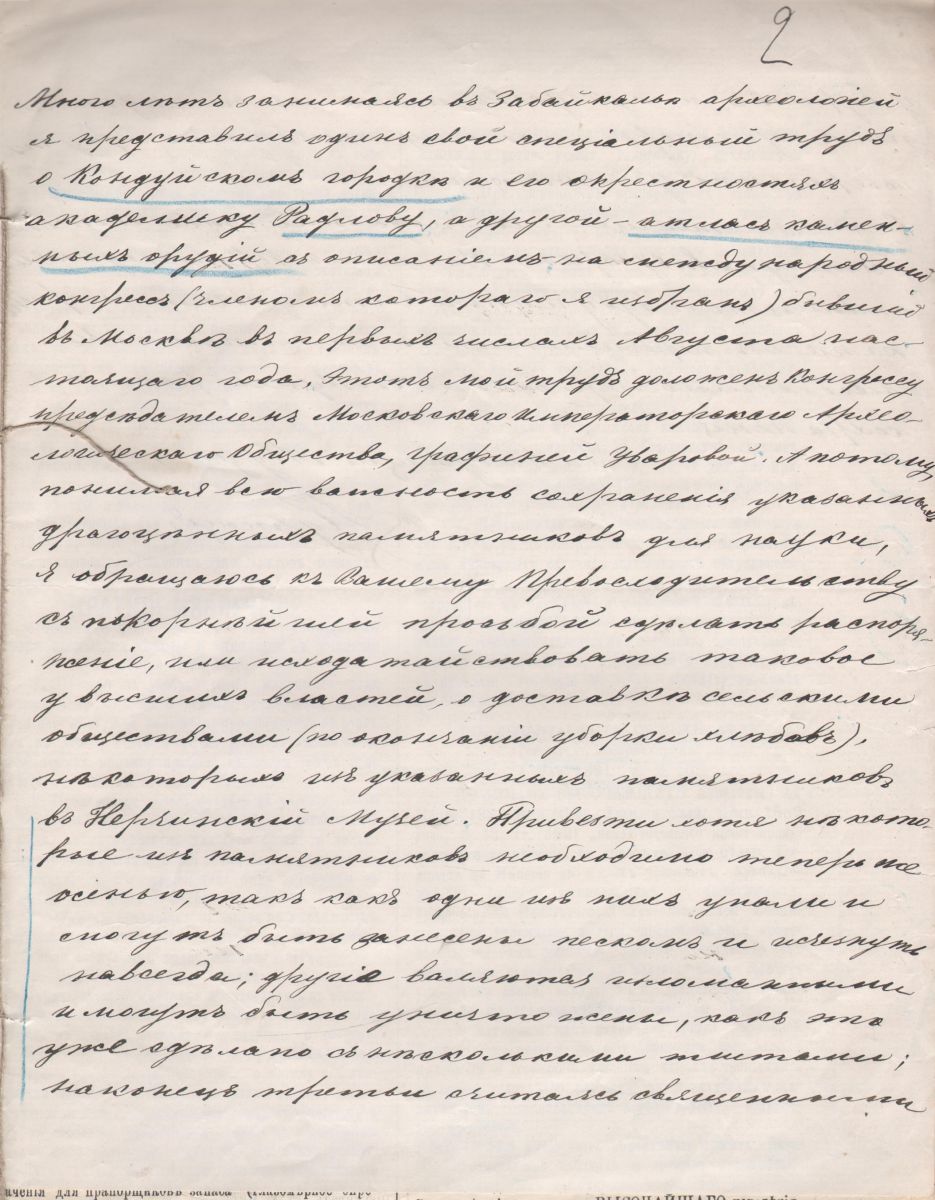 2
Много лѣтъ занимаясь въ Забайкальѣ археологіей
я представилъ одинъ свой спеціальный трудъ
о Кондуйскомъ городкѣ и его окрестностяхъ
академику Радлову, а другой – атласъ камен-
ныхъ орудій съ описаніемъ на международный
конгрессъ (членомъ котораго я избранъ) бывшій
въ Москвѣ въ первыхъ числахъ Августа нас-
тоящаго года. Этотъ мой трудъ доложенъ Конгрессу
предсѣдателемъ Московскаго Императорскаго Архео-
логическаго Общества, графиней Уваровой. А потому,
понимая всю важность сохраненія указанныхъ
драгоцѣнныхъ памятниковъ для науки,
я обращаюсь къ Вашему Превосходительству
съ покорнѣйшей просьбой сдѣлать распоря-
женіе, или исходатайствовать таковое
у высшихъ властей, о доставкѣ сельскими
обществами (по окончаніи уборки хлѣбовъ),
нѣкоторыхъ изъ указанныхъ памятниковъ
въ Нерчинскій Музей. Привезти хотя нѣкото-
рые изъ памятниковъ необходимо теперь же
осенью, такъ какъ одни изъ нихъ упали и
могутъ быть занесены пескомъ и исчезнуть
навсегда; другіе валяются изломанными
и могутъ быть уничтожены, какъ это
уже сдѣлано съ нѣсколькими плитами;
наконецъ третьи считаясь священными
ченія для прапорщиковъ запаса (глазомѣрное
ВЫСОЧАЙШАГО